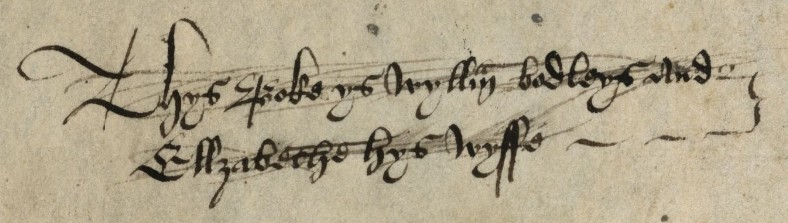 Thys Boke ys Wyllm bodleys And
Ellzabethe hys Wyffe